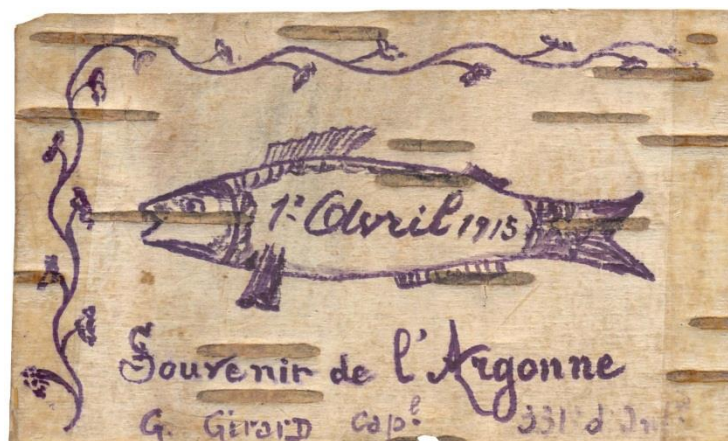 1er Avril 1915
Souvenir de l'Argonne
G. Girard capl 331e d'Infie